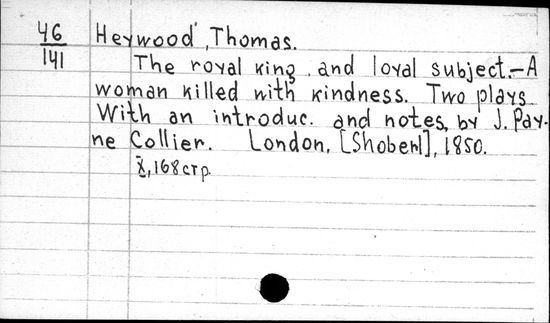 46 Heywood, Thomas.
141 The royal king and loyal subject.-A
woman killed with kindness. Two plays
With an introduc. and notes, by J. Pay-
ne Collier. London, [Shoberl], 1850.
X, 168 стр.